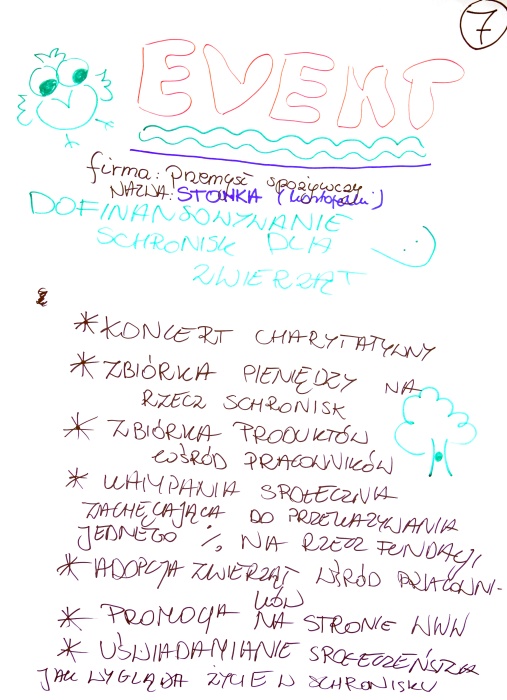 7
EVENT
firma: Przemysł spożywczy
NAZWA: STONKA (
DOFINANSOWYWANIE
SCHRONISK DLA
ZWIERZĄT
* KONCERT CHARYTATYWNY
* ZBIÓRKA PIENIĘDZY NA
RZECZ SCHRONISK
* ZBIÓRKA PRODUKTÓW
WŚRÓD PRACOWNIKÓW
* KAMPANIA SPOŁECZNA
ZACHĘCAJĄCA DO PRZEKAZYWANIA
JEDNEGO % NA RZECZ FUNDACJI
* ADOPCJA ZWIERZĄT WŚRÓD PRACOWNI-
KÓW
* PROMOCJA NA STRONIE WWW
* UŚWIADAMIANIE SPOŁECZEŃSTWA
JAK WYGLĄDA ŻYCIE W SCHRONISKU